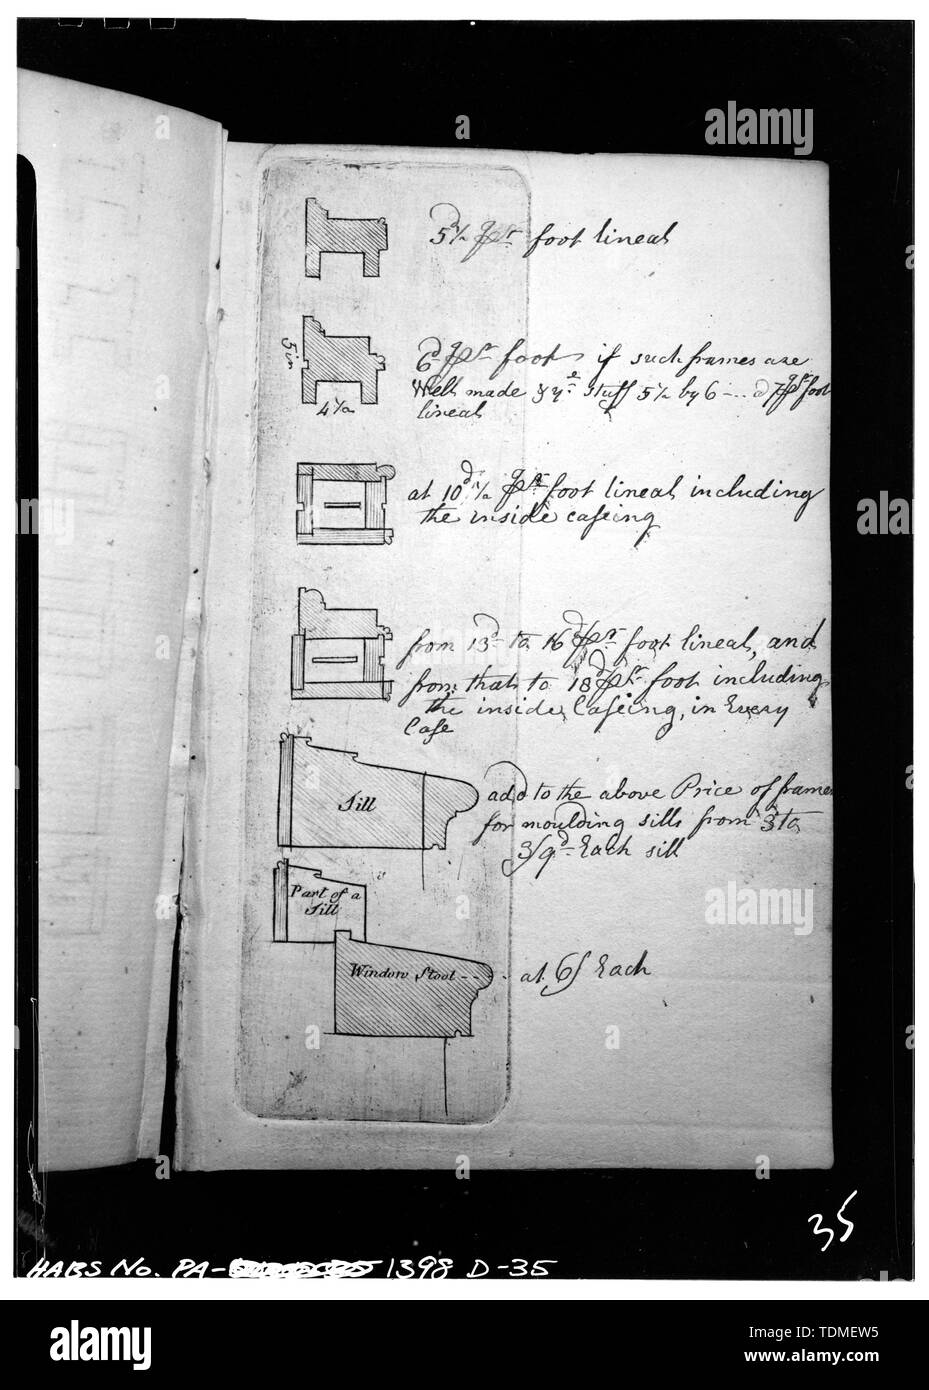 5d½ pr foot lineal
5 in
4½
6d pr foot if such frames are
Well made & ye stuff 5½ by 6 -.. d7 pr foot
lineal
at 10d½ pr foot lineal including
the inside caseing
from 13d to 16d pr foot lineal, and
from that to 18d pr foot including
the inside Caseing, in Every
Case
Sill
add to the above Price of frames
for moulding sills from 3s to
3/9d Each sill
Part of a
Sill
Window Stool - - - - at 6/ Each
35
HABS No. PA- 1398 D-35
alamy
Image ID: TDMEW5
www.alamy.com